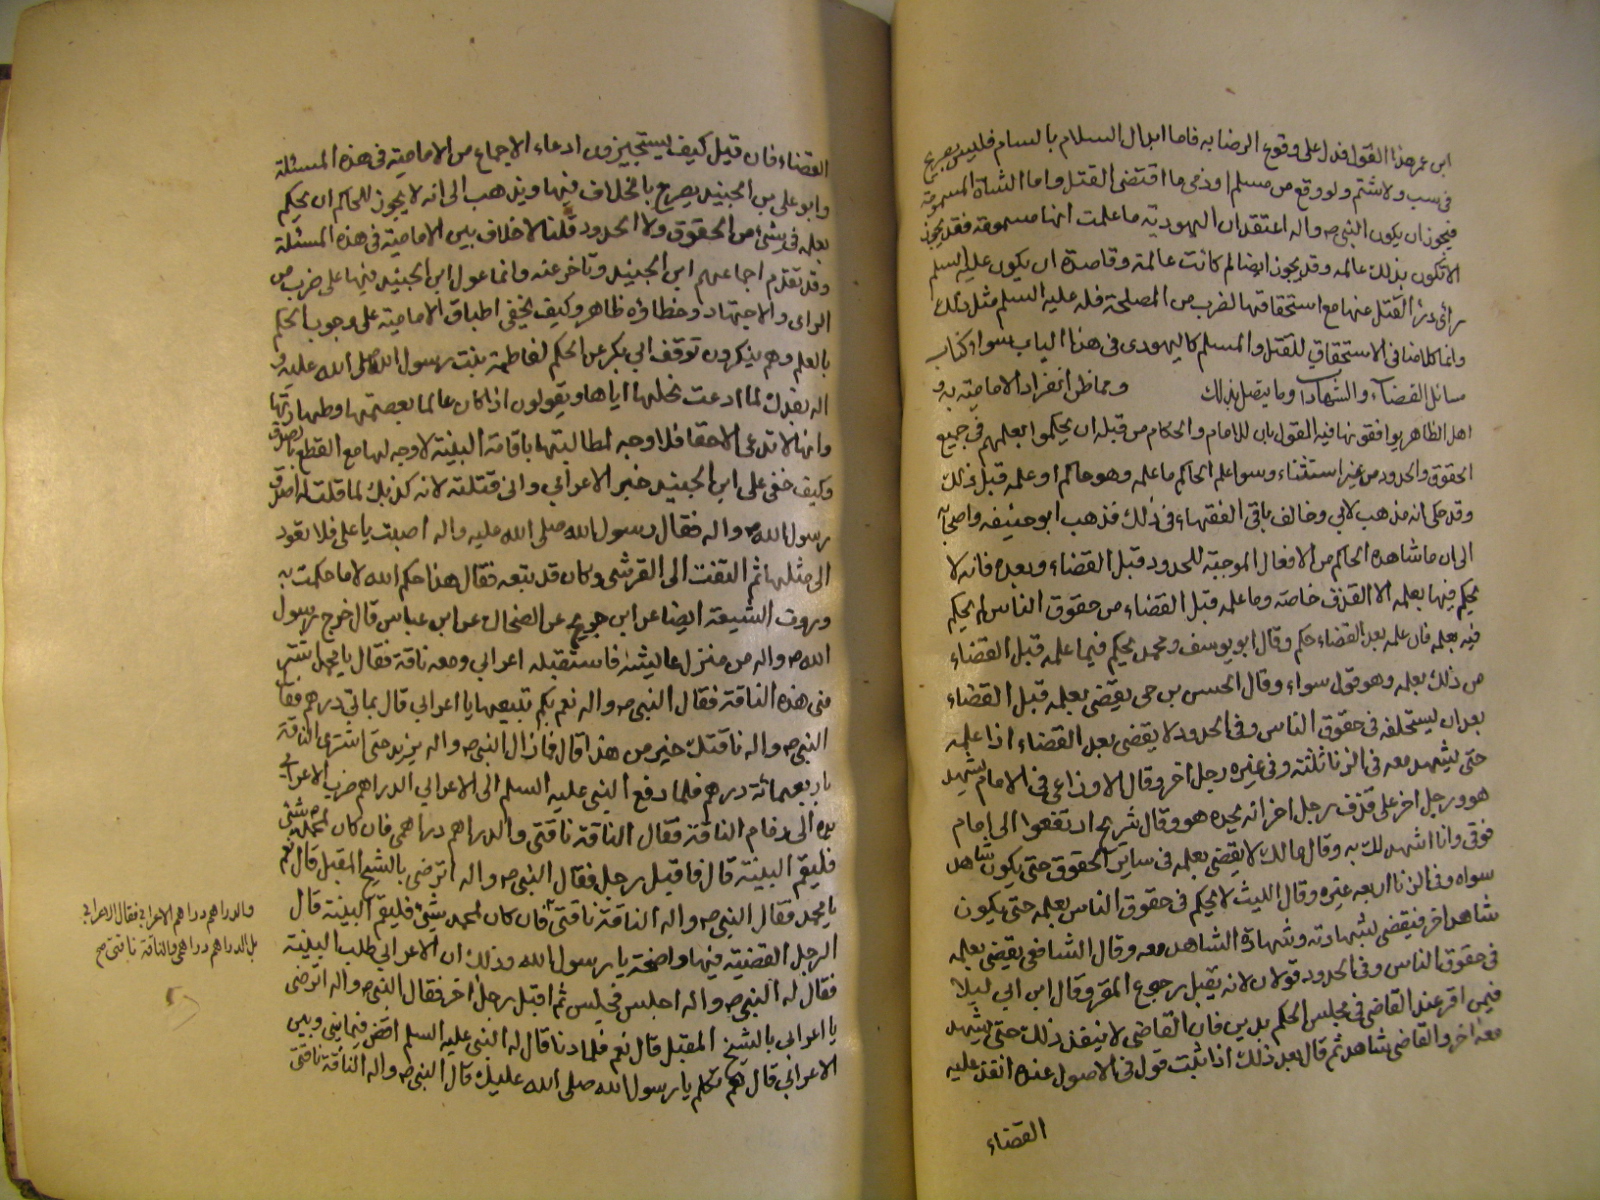 ابن عمر هذا القول فدل على وقوع الرضا به فاما ابدال السلام بالسام فليس بصريح
في سب ولا شتم ولو وقع من مسلم او ذمي ما اقتضى القتل واما الشاة المسمومة
فيجوز ان يكون النبي ص واله اعتقد ان اليهودية ما علمت انها مسمومة فقد يجوز
الا تكون بذلك عالمة وقد يجوز ايضا لم كانت عالمة وقاصدة ان يكون عليه السلم
رأى درأ القتل عنها مع استحقاقها لضرب من المصلحة فله عليه السلم مثل ذلك
وانما كلامنا في الاستحقاق للقتل والمسلم كاليهودي في هذا الباب سواء كتاب
مسائل القضاء والشهادات وما يتصل بذلك ومما ظن انفراد الامامية به و
اهل الظاهر يوافقونها فيه القول بان للامام والحكام من قبله ان يحكموا بعلمهم في جميع
الحقوق والحدود من غير استثناء وسواء علم الحاكم ما علمه وهو حاكم او علمه قبل ذلك
وقد حكى انه مذهب لابي وخالف باقي الفقهاء في ذلك فذهب ابو حنيفه واصحابه
الى ان ما شاهده الحاكم من الافعال الموجبة للحدود قبل القضاء وبعده فانه لا
يحكم فيها بعلمه الا القذف خاصة وما علمه قبل القضاء من حقوق الناس لم يحكم
فيه بعلمه فان علمه بعد القضاء حكم وقال ابو يوسف ومحمد يحكم فيما علمه قبل القضاء
من ذلك بعلمه وهو قول سواء وقال الحسن بن حي يقضى بعلمه قبل القضاء
بعد ان يستحلفه في حقوق الناس وفي الحدود لا يقضى بعد القضاء اذا علمه
حتى يشهد معه في الزنا ثلثة وفي غيره رجل اخر وقال الاوزاعي في الامام يشهد
هو ورجل اخر على قذف رجل اخر انه يحده هو وقال شريح ارتفعوا الى امام
فوقي وانا اشهد لك به وقال مالك لا يقضي بعلمه في ساير الحقوق حتى يكون شاهد
سواه وفي الزنا اربعه غيره وقال الليث لا يحكم في حقوق الناس بعلمه حتى يكون
شاهد اخر فيقضى بشهادته وشهادة الشاهد معه وقال الشافعي يقضى بعلمه
في حقوق الناس وفي الحدود قولان لانه يقبل رجوع المقر وقال ابن ابي ليلا
فيمن اقر عند القاضى في مجلس الحكم بدين فان القاضى لا ينفذ ذلك حتى يشهد
معه اخر والقاضى شاهد ثم قال بعد ذلك اذا ثبت قول في الاصول عنده انفذ عليه
القضاء
القضاء فان قيل كيف يستجيزون ادعاء الاجماع من الامامية في هذه المسئلة
وابو على بن الجنيد يصرح بالخلاف فيها ويذهب الى انه لا يجوز للحاكم ان يحكم
بعلمه في شئ من الحقوق ولا الحدود قلنا لا خلاف بين الامامية في هذه المسئلة
وقد تقدم اجماعهم ابن الجنيد وتاخر عنه وانما عول ابن الجنيد فيها على ضرب من
الراى والاجتهاد وخطاؤه ظاهر وكيف يخفى اطباق الامامية على وجوب الحكم
بالعلم وهم ينكرون توقف ابي بكر عن الحكم لفاطمة بنت رسول الله صلى الله عليه و
اله بفدك لما ادعت نحلها اياها ويقولون اذا كان عالما بعصمتها وطهارتها
وانها لا تدعي الا حقا فلا وجه لمطالبتها باقامة البينة لا وجه لها مع القطع بالصدق
وكيف خفى على ابن الجنيد خبر الاعرابي وانى قتلته لانه كذبك لما قلت له اصدق
رسول الله ص واله فقال رسول الله صلى الله عليه واله اصبت يا على فلا تعود
الى مثلها ثم التفت الى القرشي وكان قد تبعه فقال هذا حكم الله لا ما حكمت به
وروت الشيعة ايضا عن ابن جريح عن الضحاك عن ابن عباس قال خرج رسول
الله ص واله من منزل عايشة فاستقبله اعرابي ومعه ناقة فقال يا محمد تشتري
منى هذه الناقة فقال النبي ص واله نعم بكم تبيعها يا اعرابي قال بماتي درهم فقال
النبي ص واله ناقتك خير من هذا قال فمازال النبي ص واله يزيد حتى اشترى الناقة
باربعمائة درهم فلما دفع النبي عليه السلم الى الاعرابي الدراهم ضرب الاعرابي
يده الى زمام الناقة فقال الناقة ناقتي والدراهم دراهمي فان كان لمحمد شئ
فليقم البينة قال فاقبل رجل فقال النبي ص واله اترضى بالشيخ المقبل قال نعم
يا محمد فقال النبي ص واله الناقة ناقتي فان كان لمحمد شئ فليقم البينة قال
الرجل القضية فيها واضحة يا رسول الله وذلك ان الاعرابي طلب البينة
فقال له النبي ص واله اجلس فجلس ثم اقبل رجل اخر فقال النبي ص واله اترضى
يا اعرابي بالشيخ المقبل قال نعم فلما دنا قال له النبي عليه السلم اقض فيما بيني وبين
الاعرابي قال تكلم يا رسول الله صلى الله عليك قال النبي ص واله الناقة ناقتي
والدراهم دراهم الاعرابي فقال الاعرابي
بل الدراهم دراهمي والناقة ناقتي صح